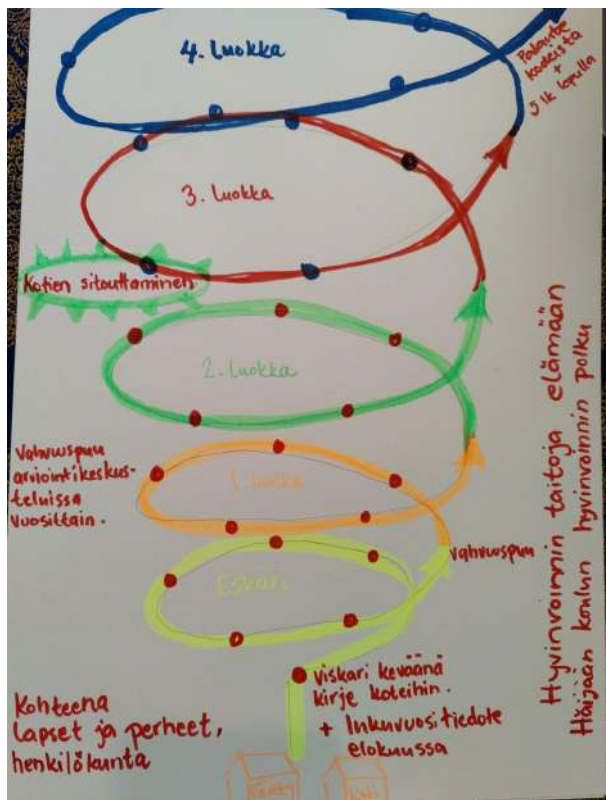 4. Luokka
Palaute
kodeista
+
5 lk lopulla
3. Luokka
Kotien sitouttaminen
2. Luokka
Vahvuuspuu
arviointikeskus-
teluissa
vuosittain.
1. Luokka
Vahvuuspuu
Eskari
Viskari keväänä
kirje koteihin.
+ Inkuvuositiedote
elokuussa
Kohteena
lapset ja perheet,
henkilökunta
Koti
Hyvinvoinnin taitoja elämään
Häijään koulun hyvinvoinnin polku